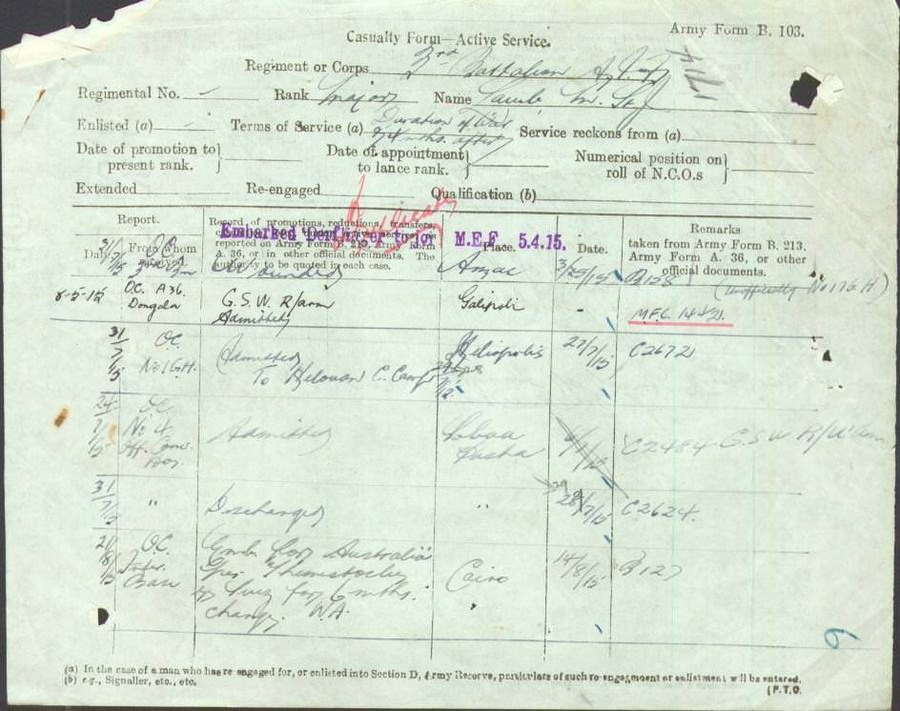 Army Form B. 103.
Casualty Form—Active Service.
Regiment or Corps 3rd Battalion
Regimental No. — Rank Major Name Lamb
Enlisted (a) — Terms of Service (a) Duration of War Service reckons from (a)
4 mths. after
Date of promotion to present rank. Date of appointment to lance rank. Numerical position on roll of N.C.O.s
Extended Re-engaged Qualification (b)
Report. Record of promotions, reductions, transfers, Remarks
Embarked M.E.F. 5.4.15.
Date From whom received reported on Army Form B. 213, Army Form Place. Date. taken from Army Form B. 213,
A. 36, or in other official documents. The Army Form A. 36, or other
authority to be quoted in each case. official documents.
OC. Wounded Anzac B158
8-5-15 OC. A36. G.S.W. R/arm Galipoli -
Dongola Admitted M.F.C. 1442.
31/7/15 OC. Admitted Heliopolis 27/7/15 C2672
No 1 G.H. To Helouan C. Camp
24/7/15 OC Admitted Abbas C2484 G.S.W R/U'arm
No 4 Pasha
Off. Conv.
31/7/15 " Discharged " 28/7/15 C2624.
21/8/15 OC. Emb. for Australia Cairo 14/8/15 B127
Inter. per Themistocles
Base Suez for 6 mths.
change. W.A.
6
(a) In the case of a man who has re-engaged for, or enlisted into Section D, Army Reserve, particulars of such re-engagement or enlistment will be entered.
(b) e.g., Signaller, etc., etc.
[P.T.O.